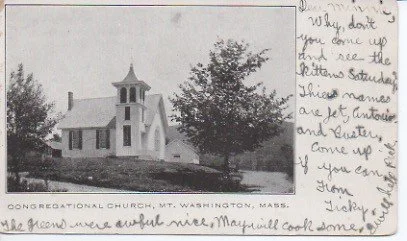 Dear Minnie,
Why, don't
you come up
and see the
kittens Saturday?
Thier names
are Jet, Antonio
and Buster,
Come up
if you can
From
Ticky.
CONGREGATIONAL CHURCH, MT. WASHINGTON, MASS.
The greens were awful nice, May will cook some.